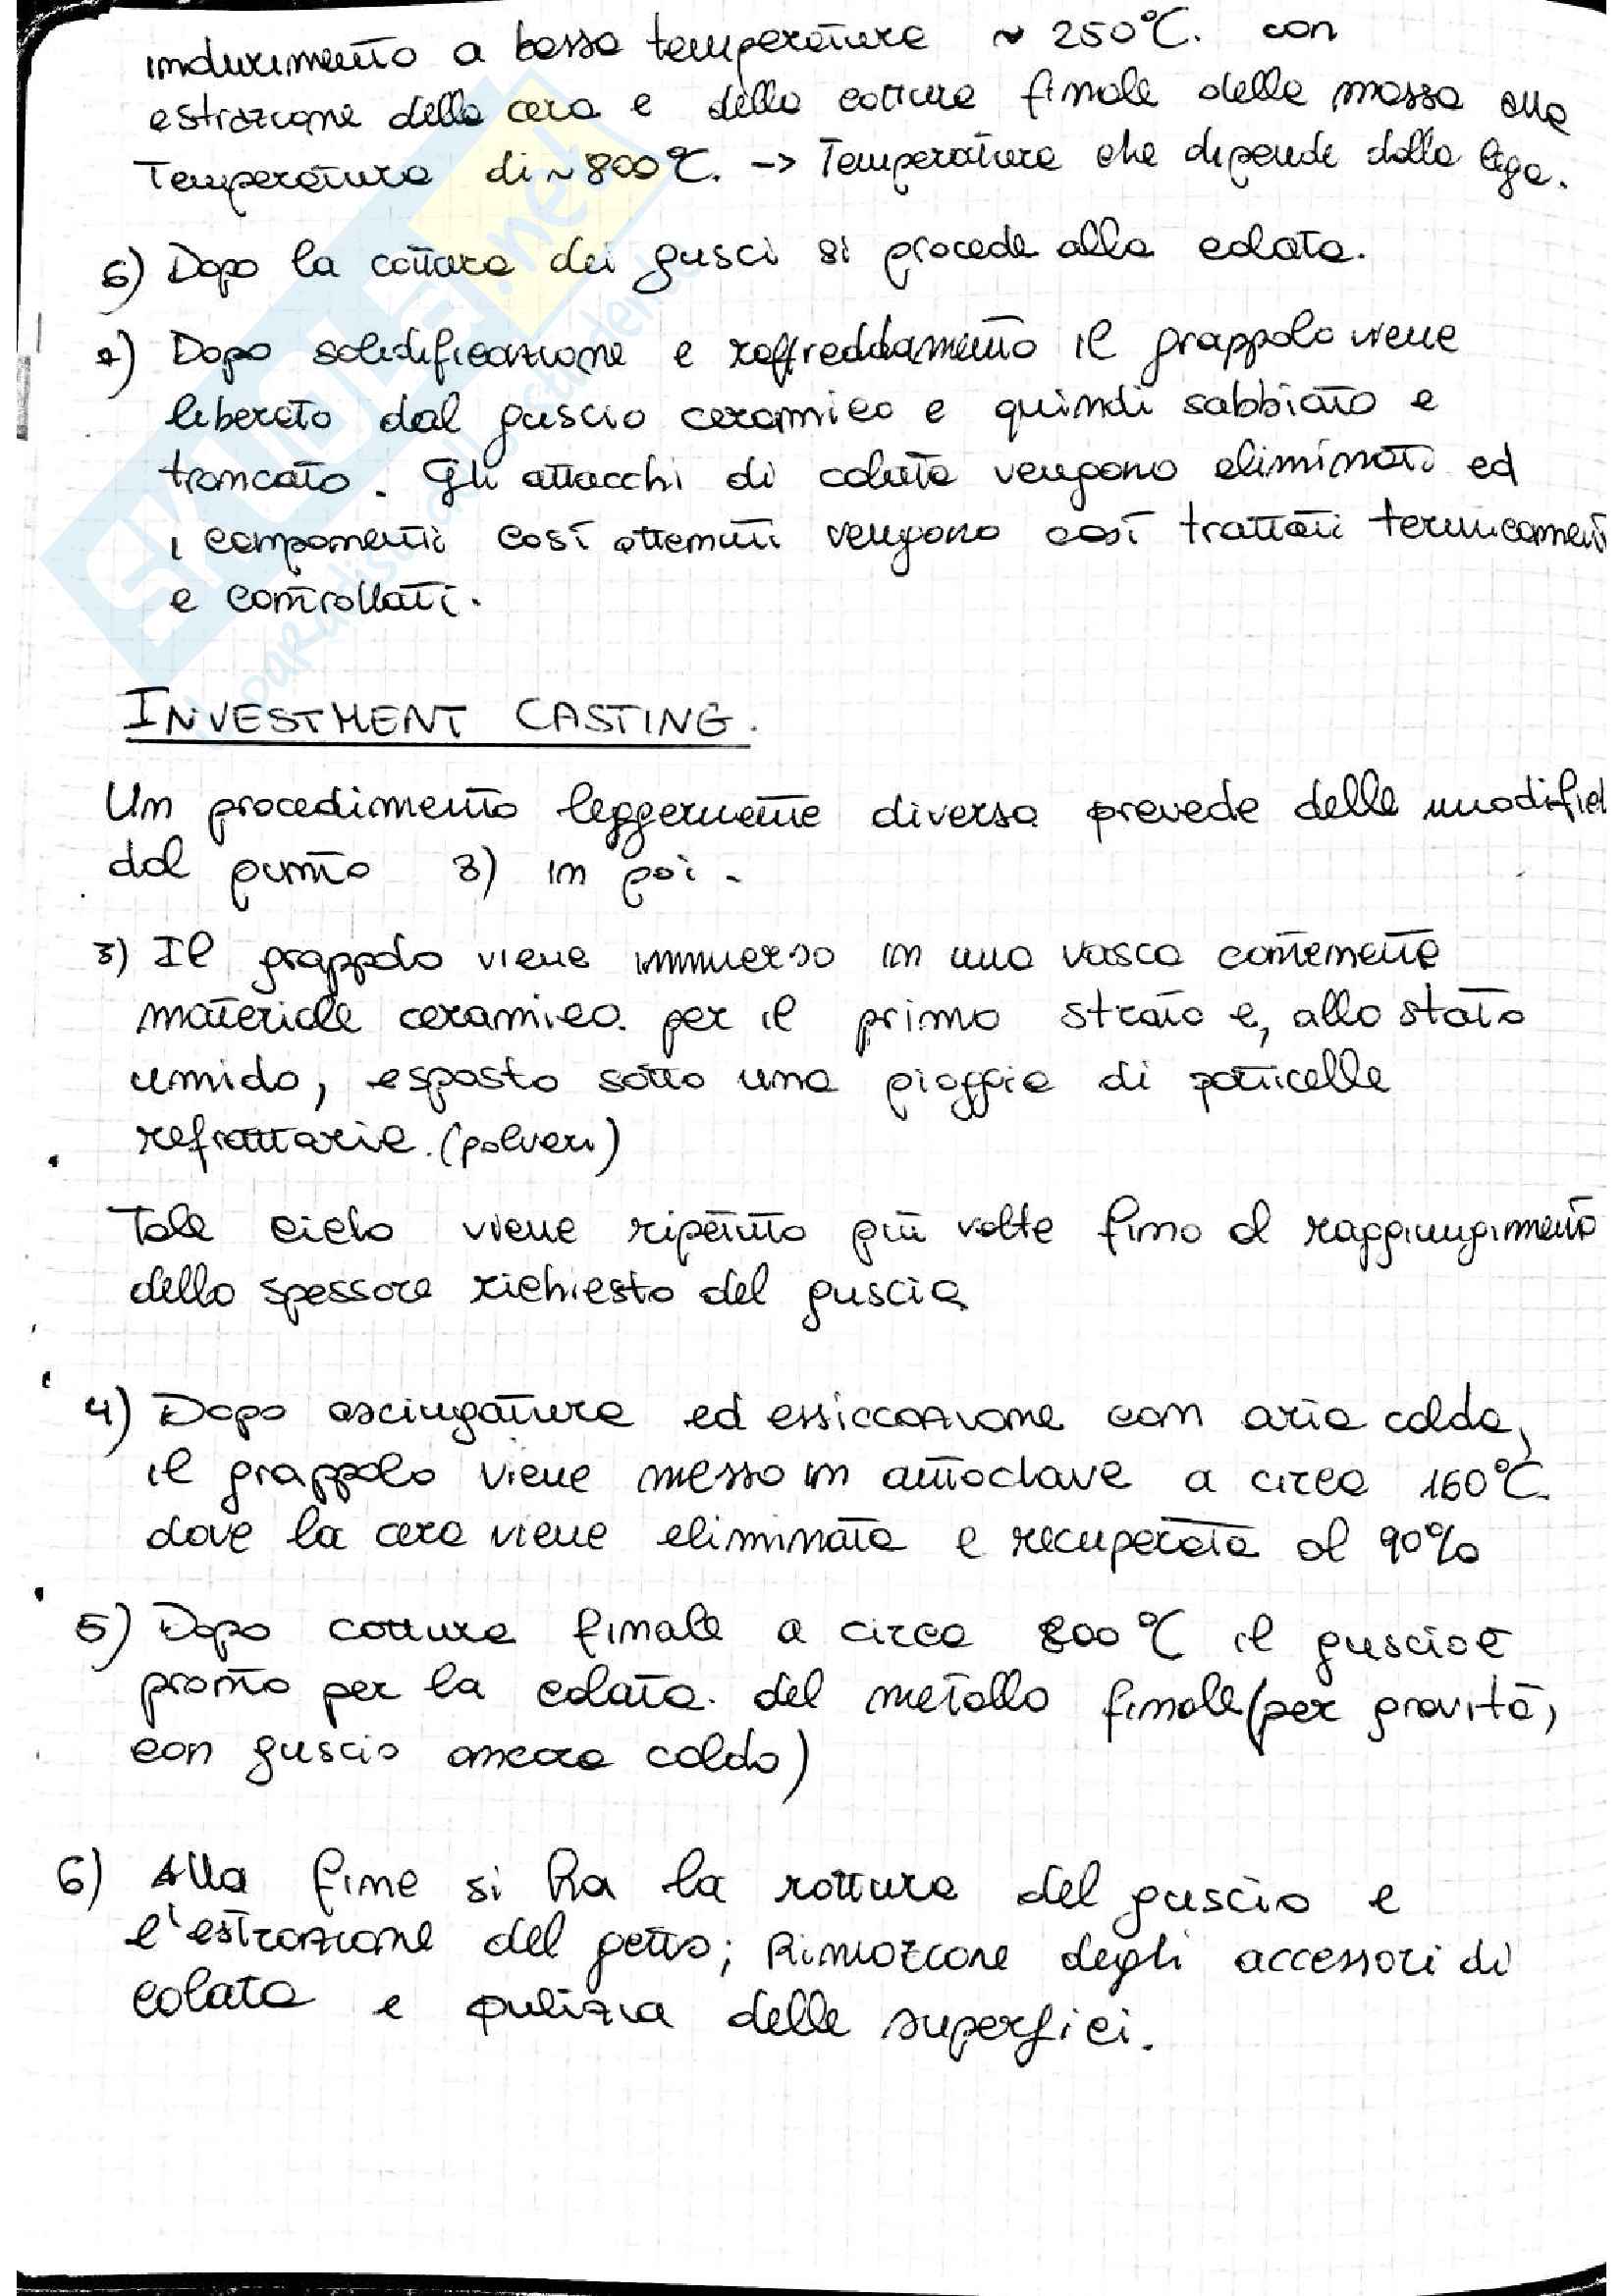 indurimento a bassa temperatura ~ 250°C. con
estrazione della cera e della cottura finale della massa alla
Temperatura di ~ 800°C. -> Temperatura che dipende dalla lega.
6) Dopo la cottura dei gusci si procede alla colata.
7) Dopo solidificazione e raffreddamento il grappolo viene
liberato dal guscio ceramico e quindi sabbiato e
troncato. Gli attacchi di colata vengono eliminati ed
i componenti così ottenuti vengono così trattati termicament
e controllati.
INVESTMENT CASTING.
Un procedimento leggermente diverso prevede delle modifich
dal punto 3) in poi.
3) Il grappolo viene immerso in una vasca contenente
materiale ceramico per il primo strato e, allo stato
umido, esposto sotto una pioggia di particelle
refrattarie. (polveri)
Tale ciclo viene ripetuto più volte fino al raggiungimento
dello spessore richiesto del guscio
4) Dopo asciugatura ed essiccazione con aria calda,
il grappolo viene messo in autoclave a circa 160°C.
dove la cera viene eliminata e recuperata al 90%
5) Dopo cottura finale a circa 800°C il guscio è
pronto per la colata. del metallo finale (per gravità,
con guscio ancora caldo)
6) Alla fine si ha la rottura del guscio e
l'estrazione del getto; Rimozione degli accessori di
colata e pulizia delle superfici.
SKUOLA.net